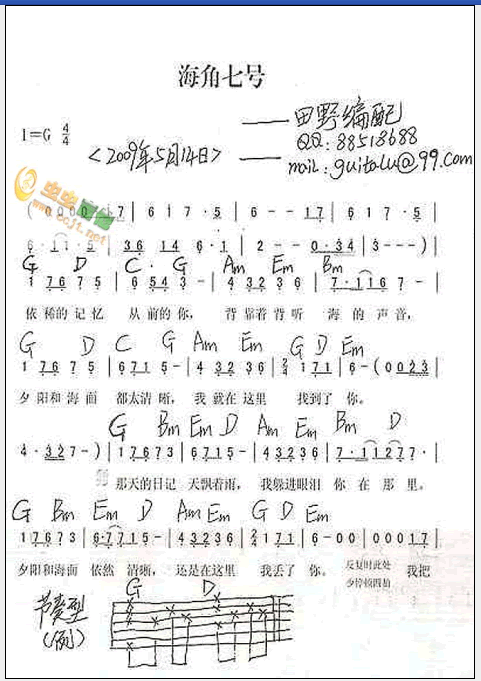 海角七号
1=G 4/4
田野编配
QQ:88518688
<2009年5月14日>
mail:guitalu@99.com
(0000·17 | 6 1 7·5 | 6--17 | 6 1 7·5 |
6·115 | 36 14 6·1 | 2--0·34 | 3---) |
G D C G Am Em Bm
1 7675 | 6543- | 4 3235 | 7·1167 |
依稀的记忆 从前的你, 背靠着背听 海的声音,
G D C G Am Em G D Em
1 7675 | 6715- | 4 3236 | 2/4 171 | 6-(0023
夕阳和海面 都太清晰, 我就在这里 找到了 你。
G Bm Em D Am Em Bm D
4·327-) | 17673 | 6715- | 43236 | 7·1127- |
那天的日记 天飘着雨, 我躲进眼泪 你在那里。
G Bm Em D Am Em G D Em
17673 | 6·7715- | 43236 | 2/4 171 | 6-00 | 00017
夕阳和海面 依然 清晰, 还是在这里 我丢了 你。 反复时此处 我把
节奏型
(例)
G D